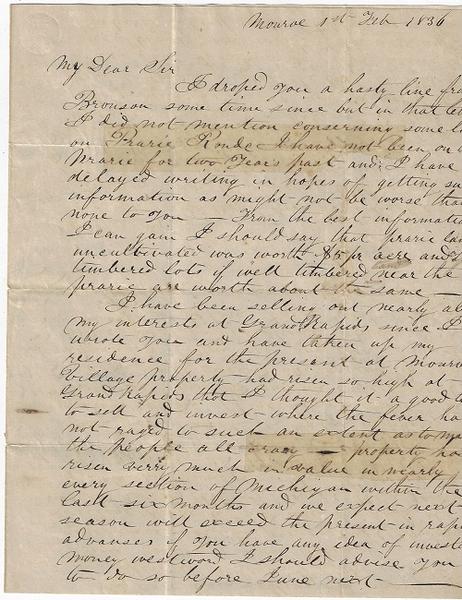 Monroe 1st Feb 1836
My Dear Sir
I droped you a hasty line
Bronson some time since but in that
I did not mention conserning some
on Prarie Ronde I have not been on
Prarie for two Years past and I have
delayed writing in hopes of getting
information as might not be worse than
none to you — From the best information
I can gain I should say that prarie
uncultivated was worth $5 pr acre and
timbered lots of well timbered near the
prarie are worth about the same —
I have been selling out nearly
my interests at Grand Rapids since I
wrote You and have taken up my
residence for the present at Monroe
Village property had risen so high at
Grand Rapids that I thought it a good
to sell and invest where the fever
not raged to such an extent as to
the people all crazy — property
risen verry much in value in nearly
every section of Michigan within the
last six months and we expect next
season will exceed the present in
advanses if You have any idea of
money westword I should advise You
to do so before June next —